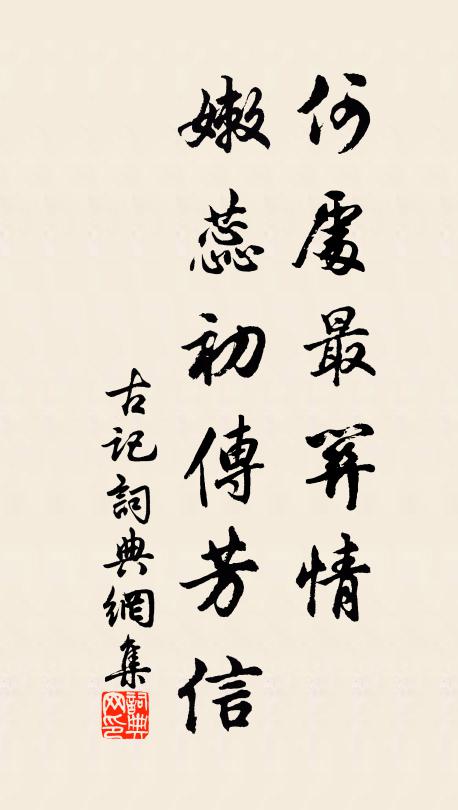 何處最關情
嫩蕊初傳芳信
古記詞典網集
詞典
网印